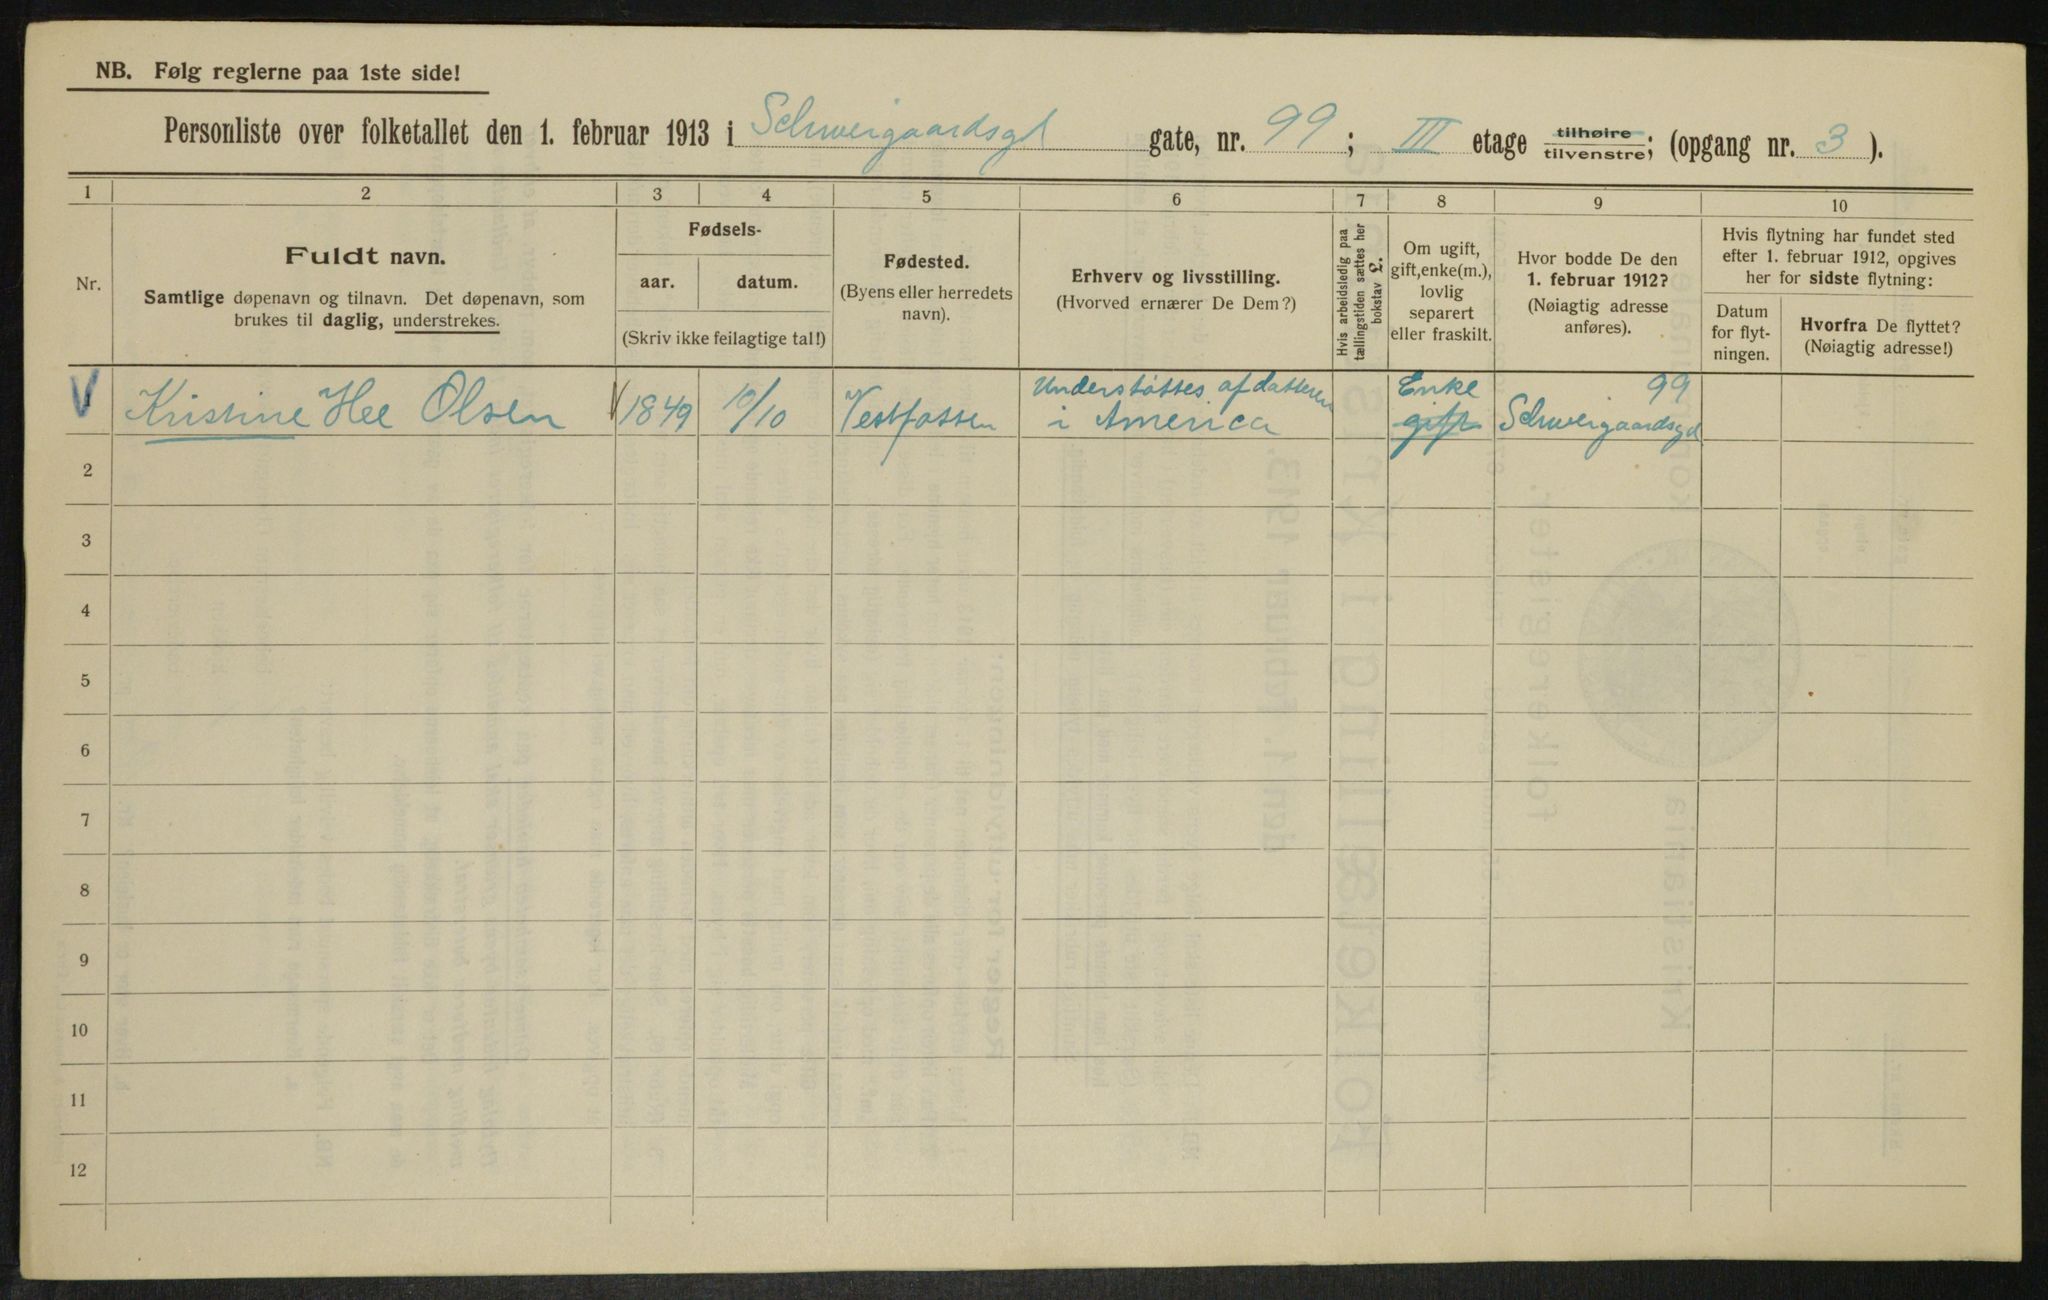 NB. Følg reglerne paa 1ste side!
Personliste over folketallet den 1. februar 1913 i Schweigaardsgd gate, nr. 99; III etage tilhøire/tilvenstre; (opgang nr. 3).
1 2 3 4 5 6 7 8 9 10
Nr.
Fuldt navn.
Samtlige døpenavn og tilnavn. Det døpenavn, som
brukes til daglig, understrekes.
Fødsels-
aar. datum.
(Skriv ikke feilagtige tal!)
Fødested.
(Byens eller herredets
navn).
Erhverv og livsstilling.
(Hvorved ernærer De Dem?)
Hvis arbeidsledig paa
tællingstiden sættes her
bokstav L.
Om ugift,
gift, enke(m.),
lovlig
separert
eller fraskilt.
Hvor bodde De den
1. februar 1912?
(Nøiagtig adresse
anføres).
Hvis flytning har fundet sted
efter 1. februar 1912, opgives
her for sidste flytning:
Datum
for flyt-
ningen.
Hvorfra De flyttet?
(Nøiagtig adresse!)
V Kristine Hee Olsen V 1849 10/10 Vestfossen
Understøttes af datteren
i America
Enke
gift
99
Schweigaardsgd
2
3
4
5
6
7
8
9
10
11
12